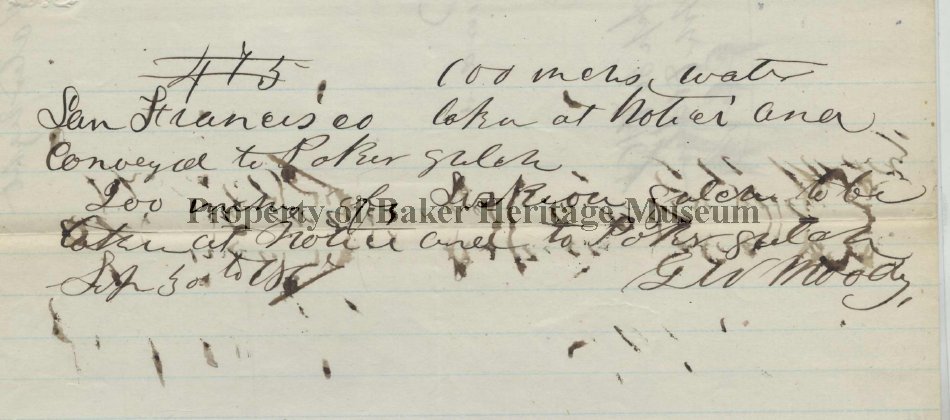 475 100 inches water
San Francisco taken at Notice and
Conveyed to Poker gulch
200 inches of Siskiyou gulch to be
taken at Notice and to Poker gulch
Sep 30th 186
G W Moody
Property of Baker Heritage Museum